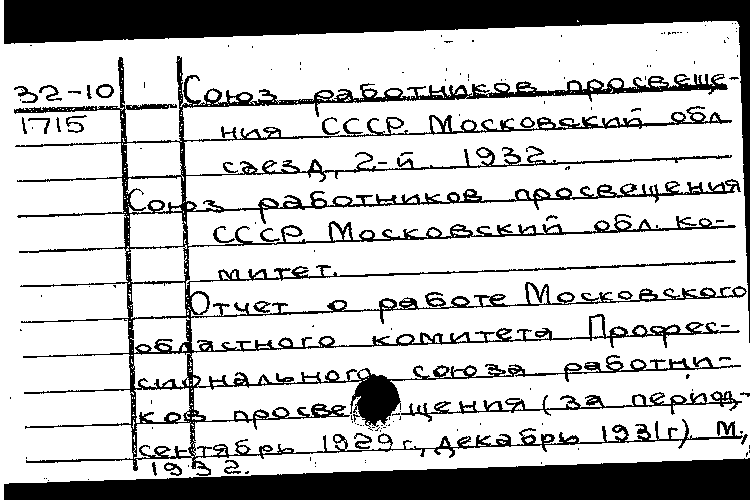 32-10 Союз работников просвеще-
1715 ния СССР. Московский обл
съезд, 2-й. 1932.
Союз работников просвещения
СССР. Московский обл. ко-
митет.
Отчет о работе Московского
областного комитета Профес-
сионального союза работни-
ков просвещения (за период-
сентябрь 1929 г., декабрь 1931 г.) М.,
1932.